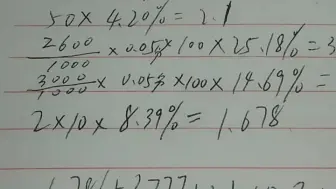 50 × 4.20% = 2.1
2600/1000 × 0.05 × 100 × 25.18% = 3
3000/1000 × 0.05 × 100 × 14.69% =
2 × 10 × 8.39% = 1.678